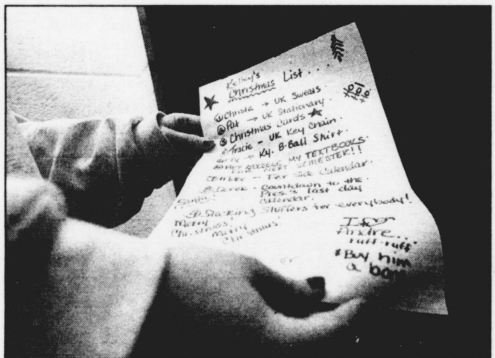 Kelley's
Christmas List...
① Christa → UK Sweats
② Pat → UK Stationary
③ Christmas Cards
Tracie - UK Key Chain.
→ Ky. B-Ball Shirt.
MY TEXTBOOKS
SEMESTER!!
Far Side Calendar.
- Countdown to the
Pres's last day
Calendar.
Stocking Stuffers for everybody!
Merry
Christmas!
Merry
Christmas.
I
Andre...
ruff-ruff
Buy him
a